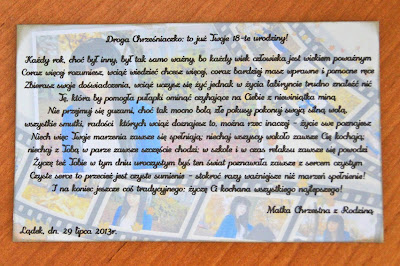 Droga Chrześniaczko: to już Twoje 18-te urodziny!
Każdy rok, choć był inny, był tak samo ważny, bo każdy wiek człowieka jest wiekiem poważnym
Coraz więcej rozumiesz, wciąż wiedzieć chcesz więcej, coraz bardziej masz sprawne i pomocne ręce
Zbierasz swoje doświadczenia, wciąż uczysz się żyć jednak w życia labiryncie trudno znaleść nić
Tę, która by pomogła pułapki ominąć czyhające na Ciebie z niewiniątka miną
Nie przejmuj się guzami, choć tak mocno bolą, złe pokusy pokonuj swoją silną wolą,
wszystkie smutki, radości których wciąż doznajesz to, można rzec inaczej - życie swe poznajesz
Niech więc Twoje marzenia zawsze się spełniają; niechaj wszyscy wokoło zawsze Cię kochają;
niechaj z Tobą w parze zawsze szczęście chodzi; w szkole i w czas relaksu zawsze się powodzi
Życzę też Tobie w tym dniu uroczystym byś ten świat poznawała zawsze z sercem czystym
Czyste serce to przecież jest czyste sumienie - stokroć razy ważniejsze niż marzeń spełnienie!
I na koniec jeszcze coś tradycyjnego: życzę Ci kochana wszystkiego najlepszego!
Matka Chrzestna z Rodziną
Lądek, dn. 29 lipca 2013r.